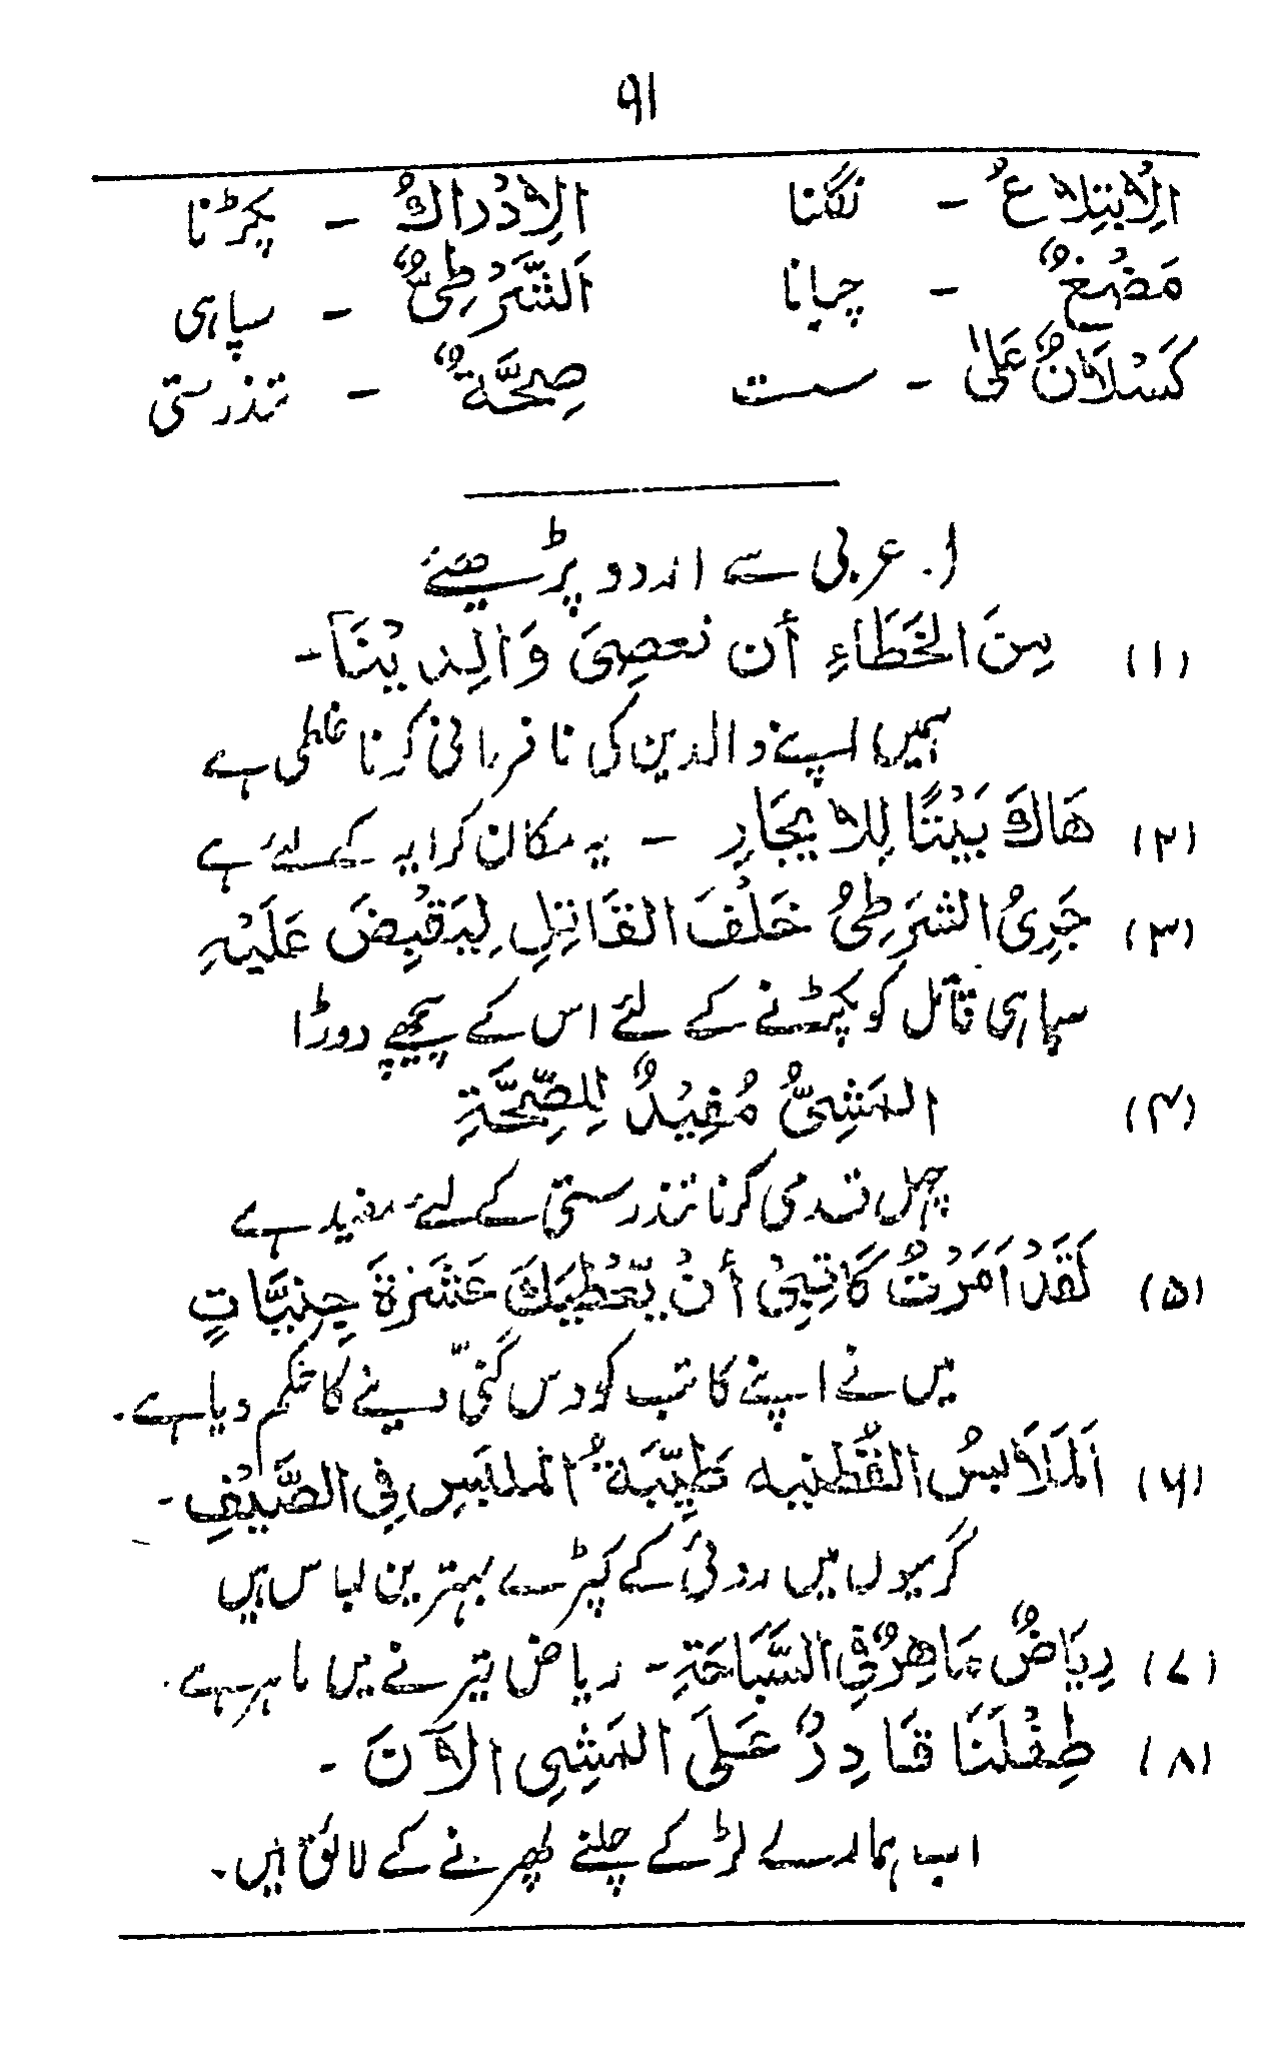 ۹۱
اَلِابْتِلَاعُ - نگلنا اَلْاِدْرَاكُ - پکڑنا
مَضْغٌ - چبانا اَلشُّرْطِىُّ - سپاہی
كَسْلَانٌ عَلىٰ - سست صِحَّةٌ - تندرستی
ا۔ عربی سے اردو پڑھیئے
(۱) مِنَ الخَطَاءِ أن نعصِىَ وَالِدَيْنَا -
ہمیں اپنے والدین کی نافرمانی کرنا غلطی ہے
(۲) هَاكَ بَيْتًا لِلايجَارِ - یہ مکان کرایہ کے لئے ہے
(۳) جَرِىُ الشرَطِىُ خَلْفَ القَاتِلِ لِيَقْبِضَ عَلَيْهِ
سپاہی قاتل کو پکڑنے کے لئے اس کے پیچھے دوڑا
(۴) المَشِىُّ مُفِيْدٌ لِلصِّحَّةِ
چہل قدمی کرنا تندرستی کے لئے مفید ہے
(۵) لَقَدْ اَمَرْتُ كَاتِبِىْ أنْ يُّعْطِيَكَ عَشَرَةَ جِنيَّاتٍ
میں نے اپنے کاتب کو دس گنّی دینے کا حکم دیا ہے۔
(۶) اَلمَلَابسُ القُطنيه طَيِّبَةُ الملبَسِ فِى الصَّيْفِ -
گرمیوں میں روئی کے کپڑے بہترین لباس ہیں
(۷) رِيَاضٌ مَاهِرٌ فِى السَّبَاحَةِ - ریاض تیرنے میں ماہر ہے۔
(۸) طِفْلَنَا قَادِرٌ عَلَى المَشِى الآنَ -
اب ہمارے لڑکے چلنے پھرنے کے لائق ہیں۔